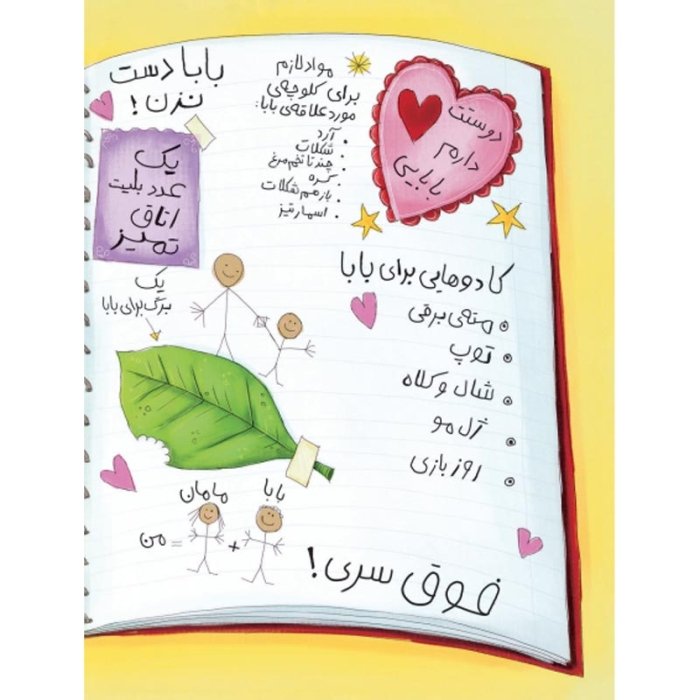 بابا دست
نزن!
یک
عدد بلیت
اتاق
تمیز
یک
برگ برای بابا
مواد لازم
برای کلوچه‌ی
مورد علاقه‌ی بابا:
• آرد
• شکلات
• چند تا تخم مرغ
• کره
• باز هم شکلات
• اسمارتیز
دوستت
دارم
بابایی
کادوهایی برای بابا
• مته‌ی برقی
• توپ
• شال و کلاه
• ژل مو
• روز بازی
بابا + مامان = من
فوق سری!